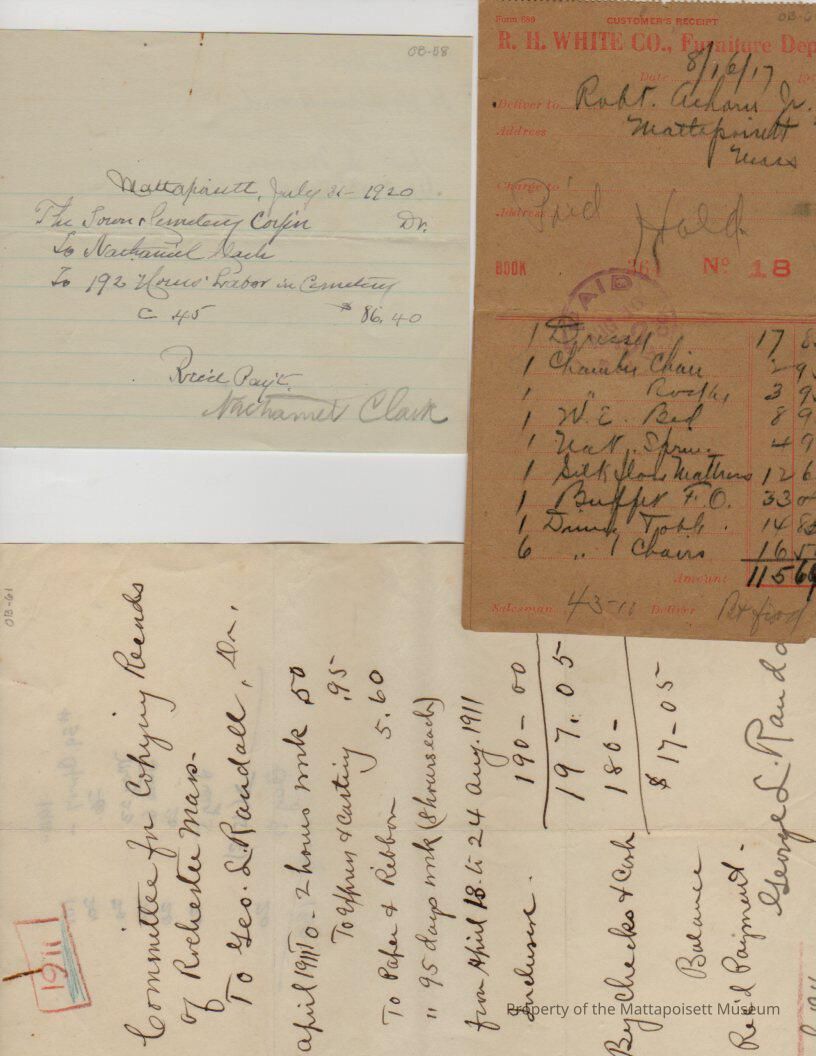 OB-58
Mattapoisett, July 31- 1920
The Town Cemetery Dr.
To Nathaniel
To 192 Hours Labor in Cemetery
c 45 $86.40
Rec'd Pay't.
Nathaniel Clark
Form 689 CUSTOMER'S RECEIPT
R. H. WHITE CO., Furniture Dep
Date 8/16/17
Deliver to Robt. Jr.
Address Mattapoisett
Mass
Charge to
Address Paid Hold
BOOK 36 No 18
PAID
1 17 8
1 Chamber Chair 9
1 " 3 9
1 W. E. Bed 8 9
1 Nat. 4 9
1 Silk Floss 12 6
1 Buffet F.O. 33
1 14 8
6 " 1 Chairs 16 5
Amount 115 6
Salesman 43-11 Deliver
OB-61
1911
Committee for Copying Records
of Rochester Mass-
To Geo. L. Randall, Dr.
April 1911 To 2 hours work .50
To & casting .95
To Paper & Ribbon 5.60
" 95 days work (8 hours each)
from April 18 to 24 Aug. 1911
inclusive. 190-00
197.05
By Checks & Cash 180-
Balance $17-05
Rec'd Payment-
George L. Randa
Property of the Mattapoisett Museum